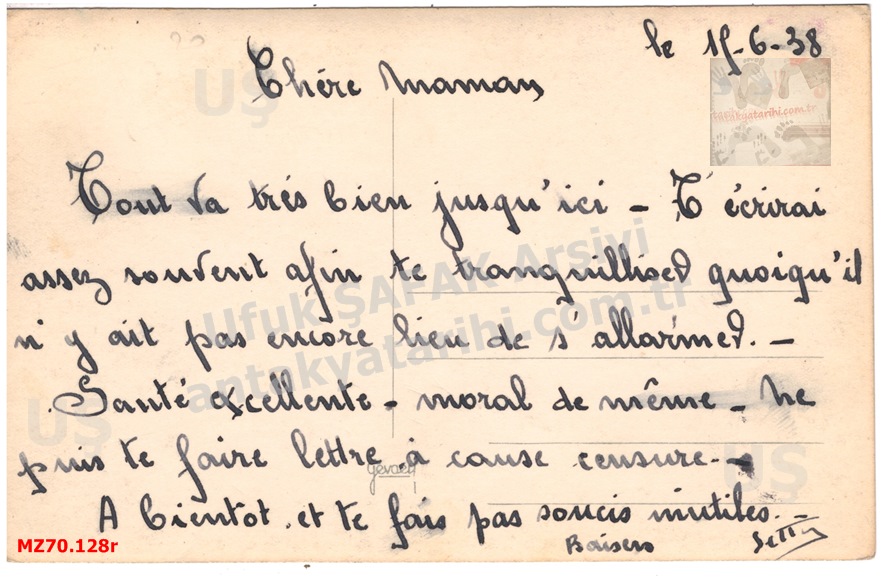 le 15-6-38
Chére Maman,
Tout va trés bien jusqu'ici - T'écrirai
assez souvent afin te tranquilliser quoiqu'il
n'y ait pas encore lieu de s'allarmer. -
Santé excellente - moral de même - ne
puis te faire lettre à cause censure. -
A bientot et te fais pas soucis inutiles. -
Baisers
Ufuk ŞAFAK Arşivi
antakyatarihi.com.tr
UŞ
UŞ
UŞ
antakyatarihi.com.tr
gevaert
MZ70.128r